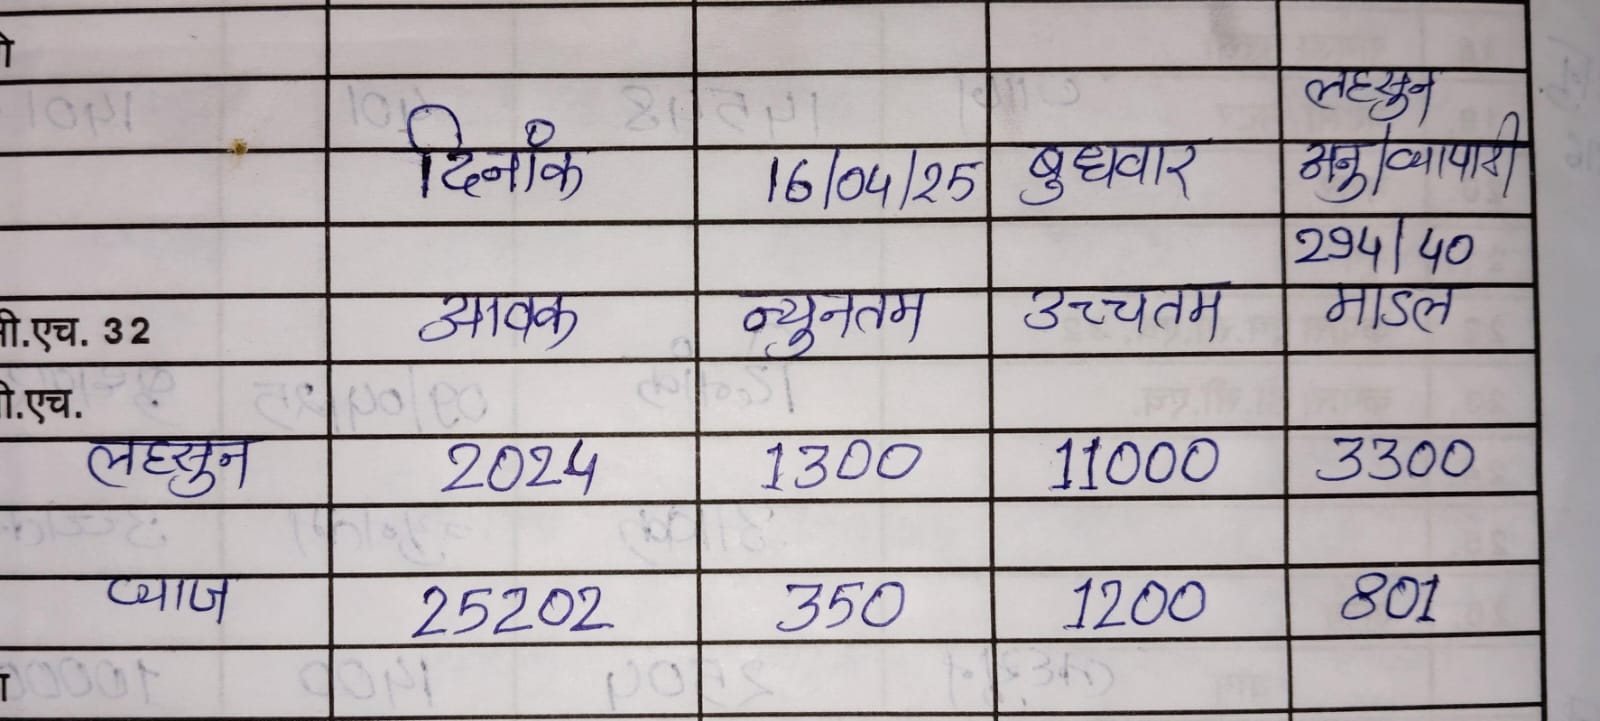 लहसुन
दिनांक 16/04/25 बुधवार अनु/व्यापारी
294/40
पी.एच. 32 आवक न्युनतम उच्चतम माडल
पी.एच.
लहसुन 2024 1300 11000 3300
प्याज 25202 350 1200 801